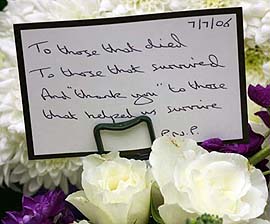 7/7/06
To those that died
To those that survived
And "thank you" to those
that helped us survive
P.N.P.